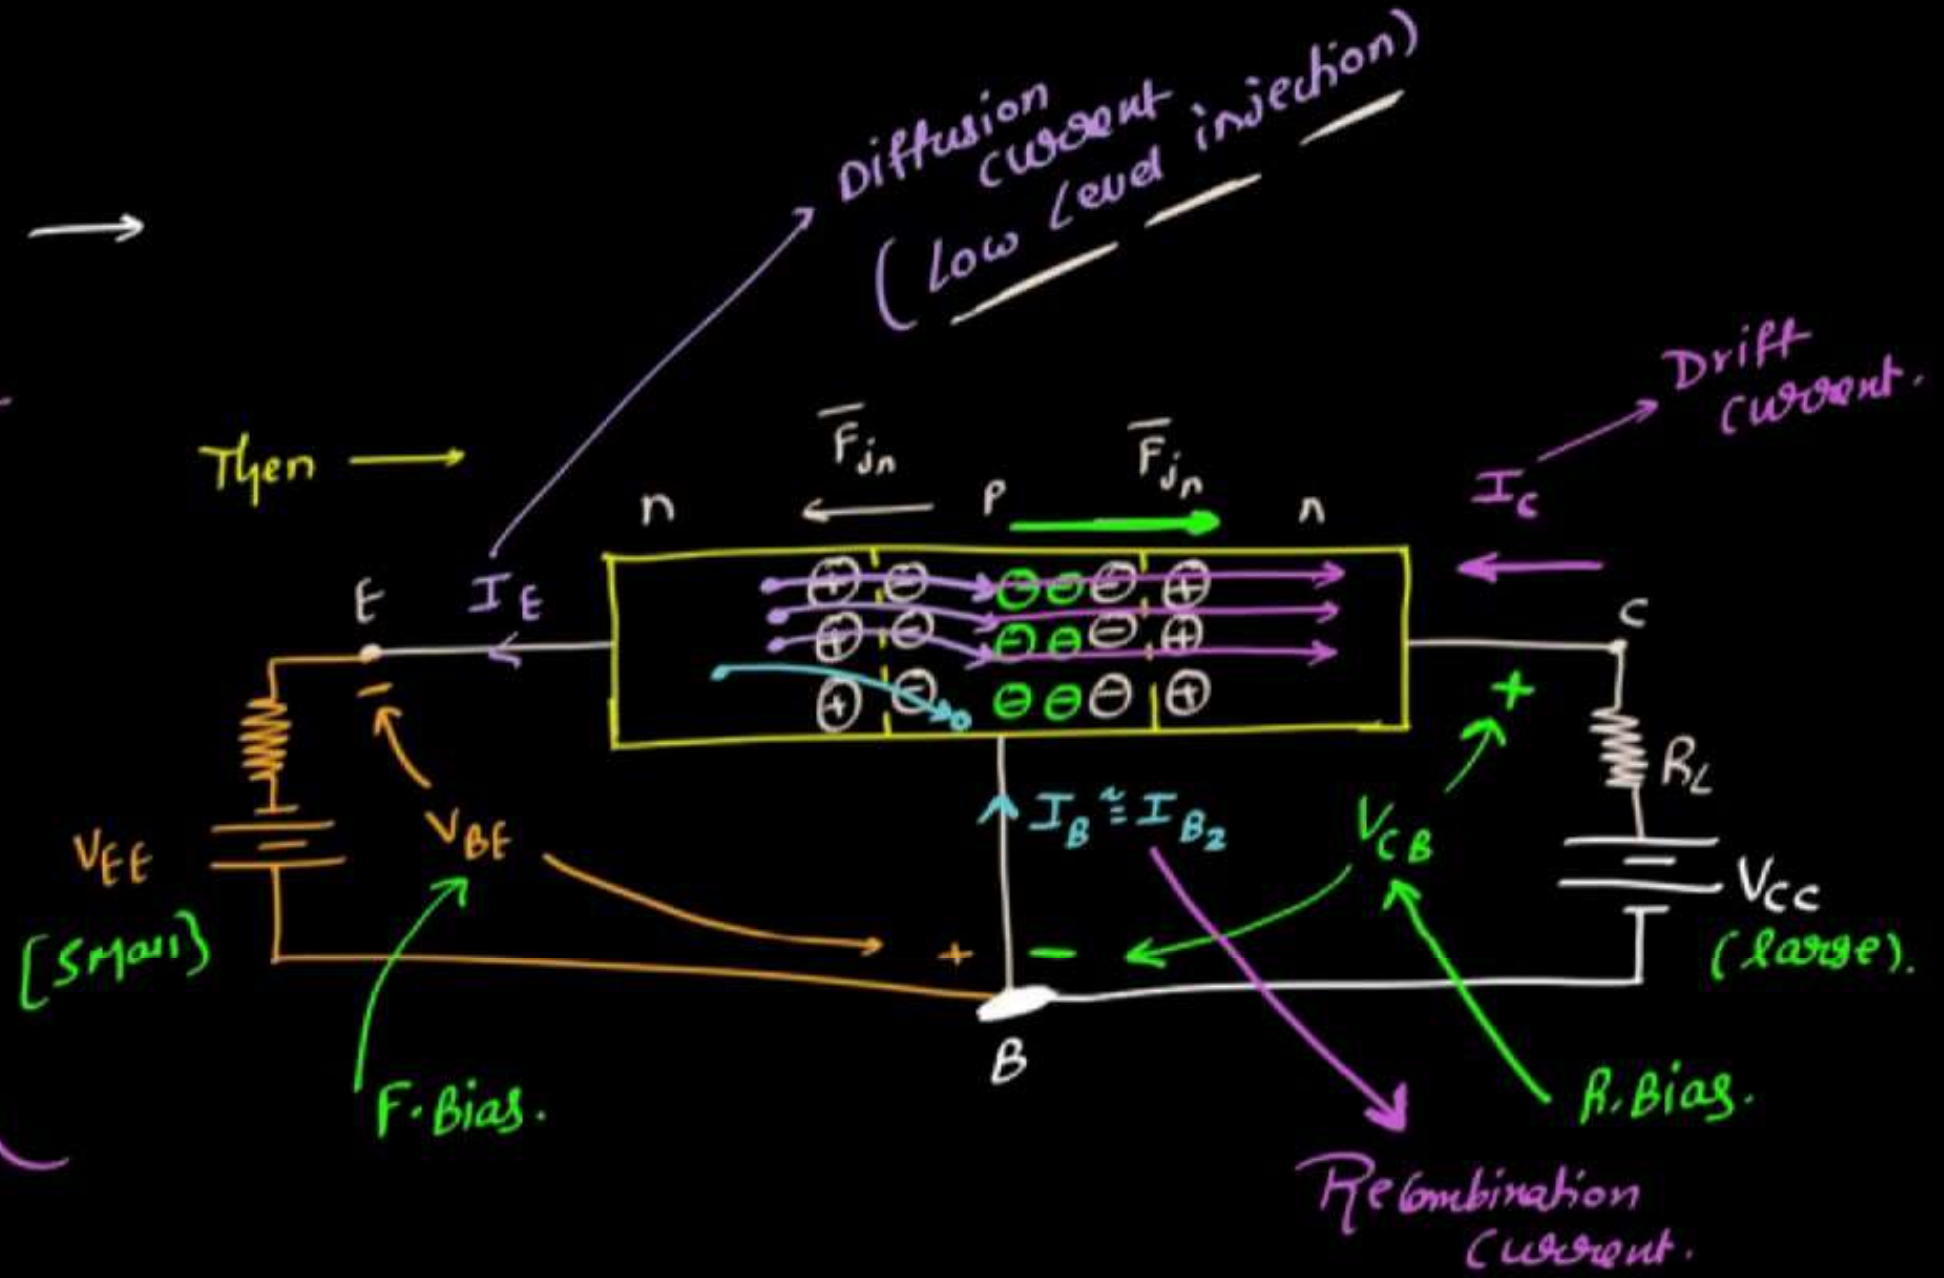 Diffusion
current
(Low Level injection)
Drift
current.
Then
F jn
F jn
n
P
n
I C
E
I E
C
+ - - - - - +
+ - - - - - +
+ - - - - - +
−
+
R L
V EE
[Small]
V BE
I B ≅ I B2
V CB
V CC
(large).
+
−
B
F. Bias.
R. Bias.
Recombination
current.